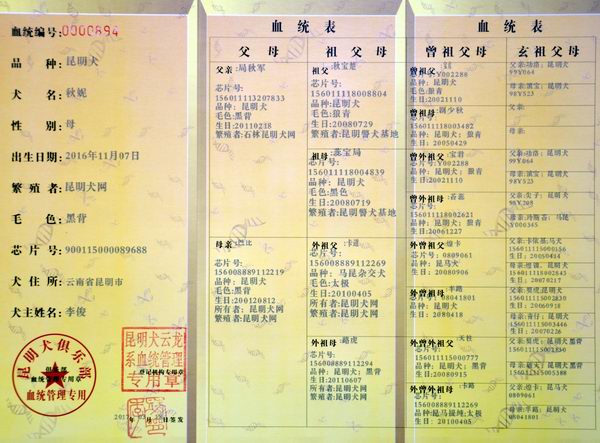 血统编号:0000894
品 种:昆明犬
犬 名:秋妮
性 别:母
出生日期:2016年11月07日
繁殖者:昆明犬网
毛 色:黑背
芯片号:900115000089688
犬住所:云南省昆明市
犬主姓名:李俊
昆明犬俱乐部
血统管理专用
昆明犬云龙
系血统管理
专用章
登记机构专用章
血统表
父母
祖父母
父亲:局秋军
芯片号:
156011113207833
品种:昆明犬
毛色:黑背
生日:20110238
繁殖者:石林昆明犬网
祖父:秋宝楚
芯片号:
156011118008804
品种:昆明犬
毛色:狼青
生日:20080729
繁殖者:昆明警犬基地
祖母:蕊宝局
芯片号:
156011118004839
品种:昆明犬
毛色:黑色
生日:20080719
繁殖者:昆明警犬基地
母亲:巴比
芯片号:
156008889112219
品种:昆明犬
毛色:黑背
生日:200120812
所有者:昆明犬网
繁殖者:昆明犬网
外祖父:卡道
芯片号:
156008889112269
品种:马昆杂交犬
毛色:太极
生日:20100405
所有者:昆明犬网
繁殖者:昆明犬网
外祖母:路虎
芯片号:
156008889112294
品种:昆明犬
毛色:黑背
生日:20110607
所有者:昆明犬网
繁殖者:昆明犬网
血统表
曾祖父母
玄祖父母
曾祖父
芯片号:Y002288
品种:昆明犬:狼青
生日:20021110
曾祖母:朗少秋
芯片号:
156011118003482
品种:昆明犬:狼青
生日:20050429
曾外祖父:宝君
芯片号:Y002288
品种:昆明犬:狼青
生日:20021110
曾外祖母:香蕊
芯片号:
156011118002621
品种:昆明犬:狼青
生日:20061227
外曾祖父:缭卡
芯片号:0809061
品种:昆马犬
生日:20080906
外曾祖母:半路
芯片号:08041801
品种:昆明犬
生日:20080418
曾外祖父:天柱
芯片号:
156011115000777
品种:昆明犬:黑背
生日:20080915
曾外祖母:卡路
芯片号:
156008889112269
品种:昆马混纯:太极
生日:20100405
父亲:功洛:昆明犬
99Y064
母亲:滇宝:昆明犬
98Y523
父亲:
母亲:
父亲:功洛:昆明犬
99Y064
母亲:滇宝:昆明犬
98Y523